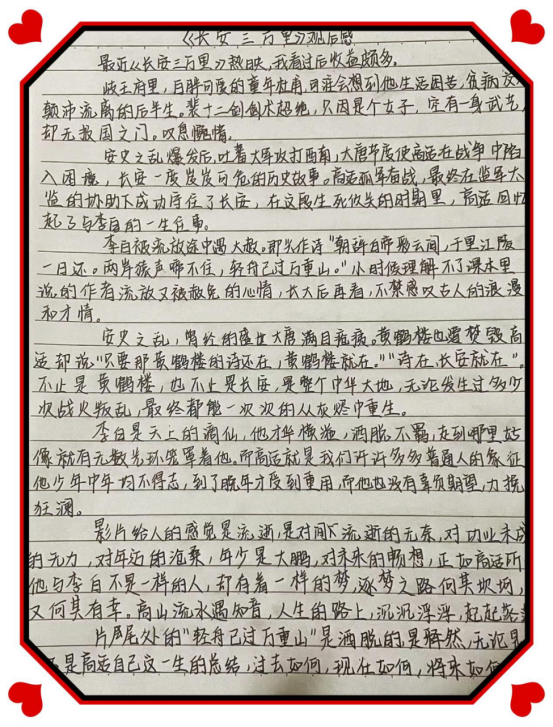 《长安三万里》观后感
最近《长安三万里》热映,我看过后收益颇多。
岐王府里,白胖可爱的童年杜甫,可谁会想到他生活困苦,贫病交
颠沛流离的后半生。裴十二剑剑术超绝,只因是个女子,空有一身武艺
却无报国之门。叹息惋惜。
安史之乱爆发后,吐着大军攻打西南,大唐节度使高适在战争中陷
入困境,长安一度岌岌可危的历史故事。高适孤军奋战,最终在监军太
监的协助下成功守住了长安,在这段生死攸关的时期里,高适回忆
起了与李白的一生往事。
李白被流放途中遇大赦。即兴作诗"朝辞白帝彩云间,千里江陵
一日还。两岸猿声啼不住,轻舟已过万重山。"小时候理解不了课本里
说的作者流放又被赦免的心情,长大后再看,不禁感叹古人的浪漫
和才情。
安史之乱,曾经的盛世大唐满目疮痍。黄鹤楼也遭焚毁高
适却说"只要那黄鹤楼的诗还在,黄鹤楼就在。""诗在,长安就在"。
不止是黄鹤楼,也不止是长安,是整个中华大地,无论发生过多少
次战火叛乱,最终都能一次次的从灰烬中重生。
李白是天上的谪仙,他才华横溢,洒脱不羁,走到哪里好
像就有无数光环笼罩着他。而高适就是我们许许多多普通人的象征
他少年中年均不得志,到了晚年才受到重用,而他也没有辜负期望,力挽
狂澜。
影片给人的感觉是流逝,是对间隙流逝的无奈,对功业未成
的无力,对年迈的沧桑,年少是大鹏,对未来的畅想,正如高适所
他与李白不是一样的人,却有着一样的梦,逐梦之路何其坎坷,
又何其有幸。高山流水遇知音,人生的路上,沉沉浮浮,起起落
片尾处的"轻舟已过万重山"是洒脱的是释然,无论是
是高适自己这一生的总结,过去如何,现在如何,将来如何